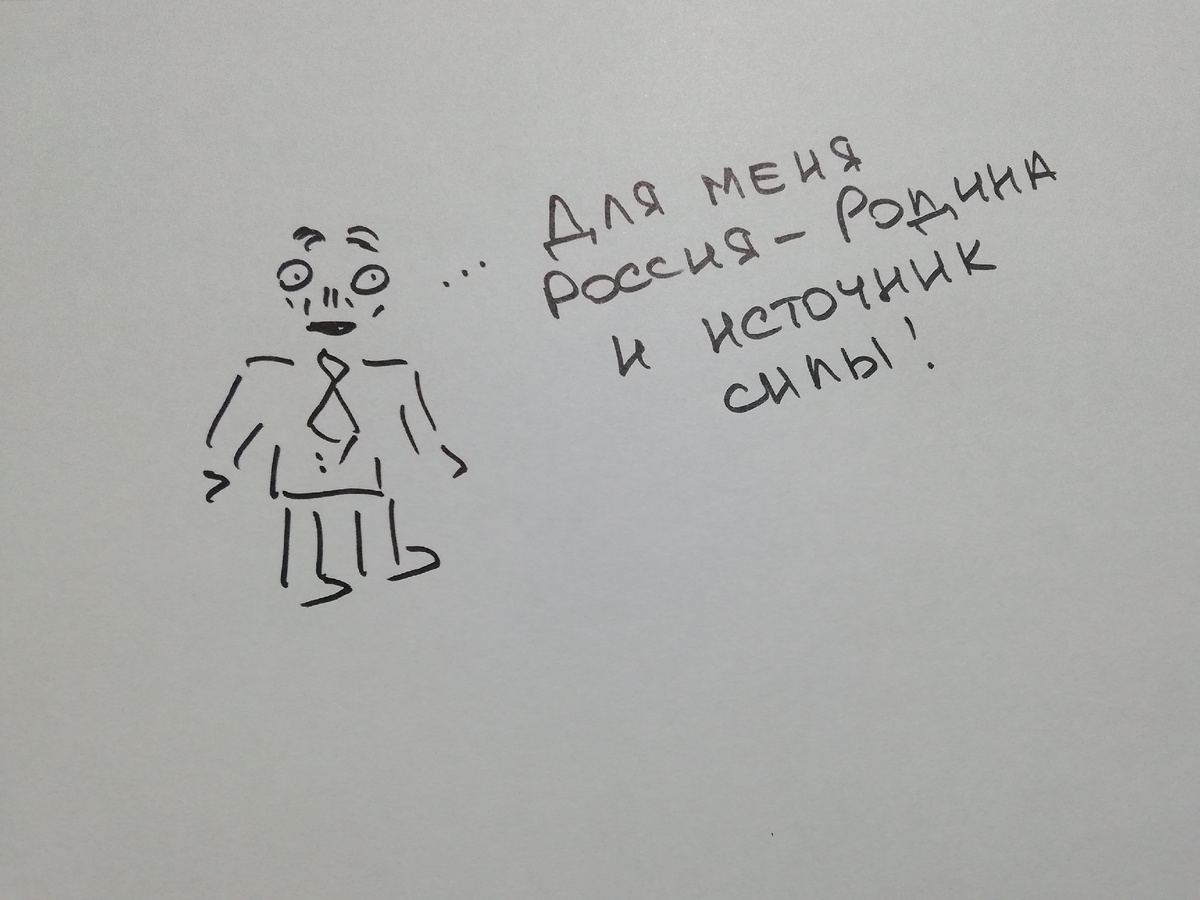 ... Для меня
Россия - Родина
и источник
силы!